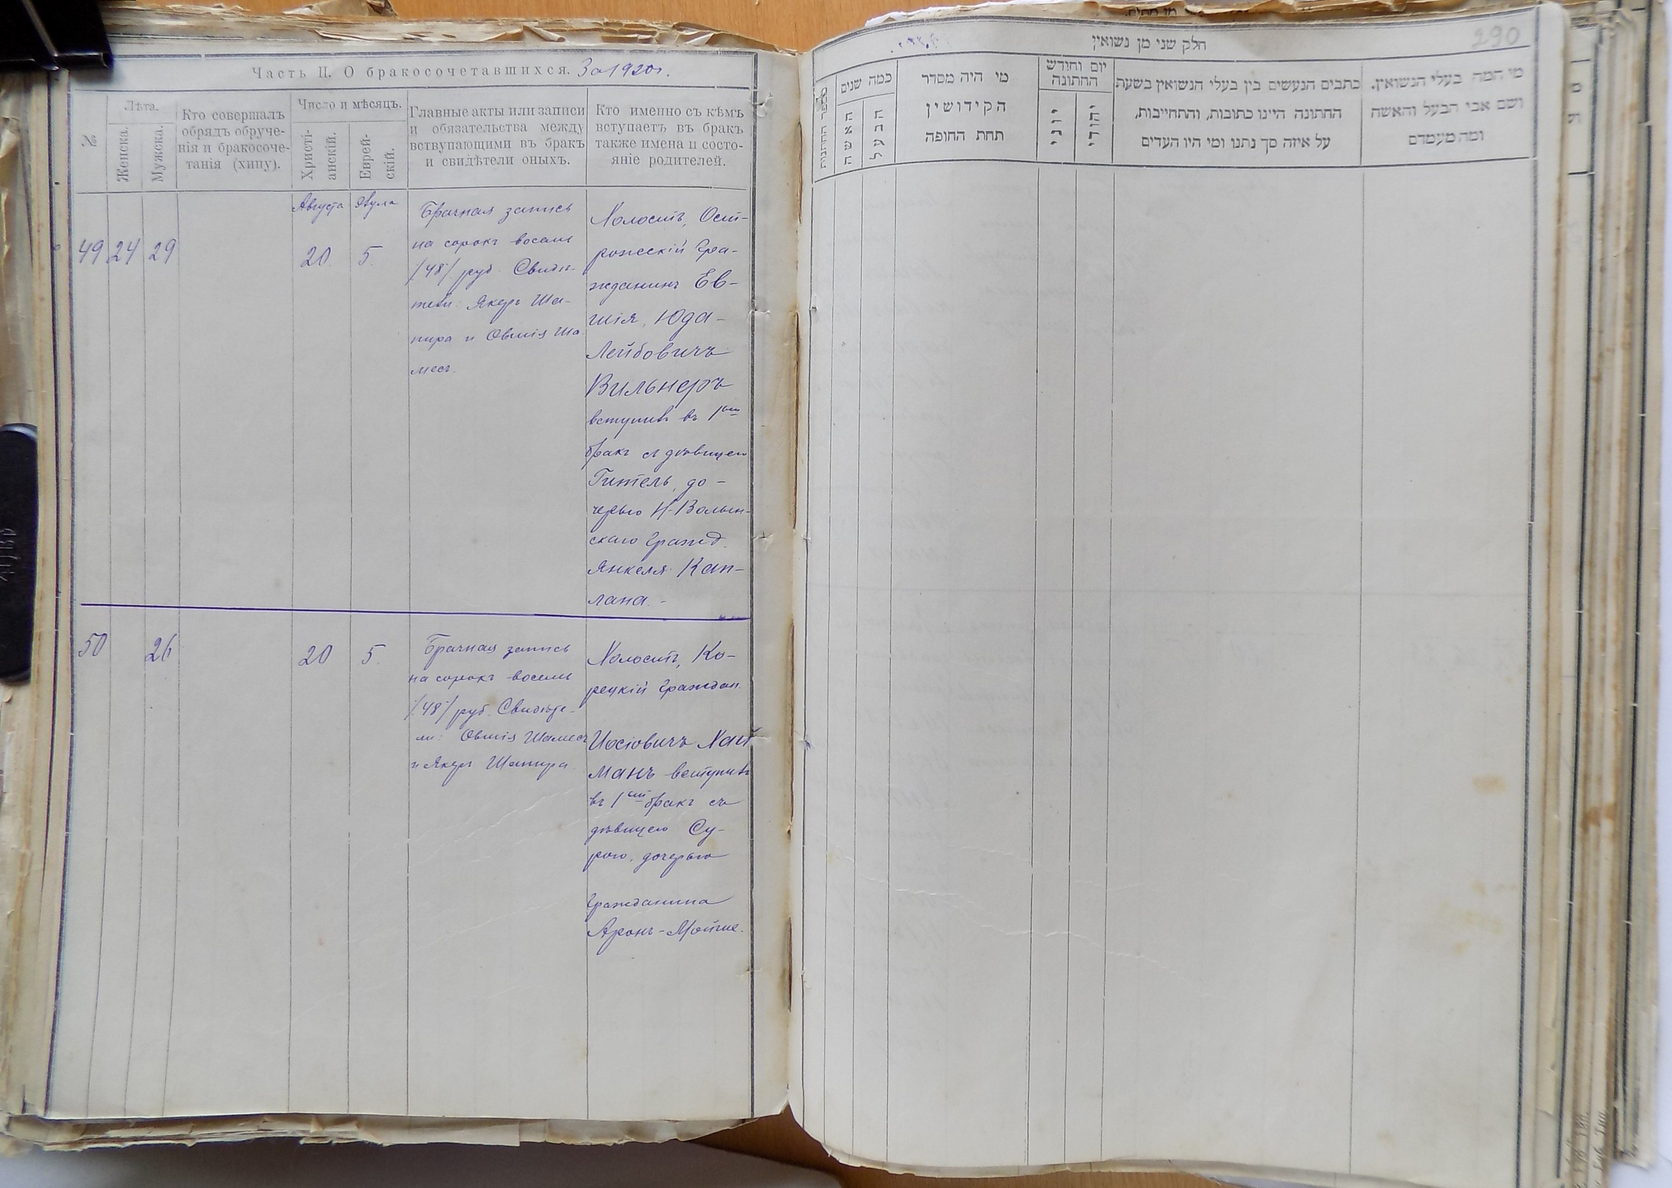 Часть II. О бракосочетавшихся. За 1920 г.
№
Лѣта.
Женска.
Мужска.
Кто совершалъ
обрядъ обруче-
нія и бракосоче-
танія (хипу).
Число и мѣсяцъ.
Христі-
анскій.
Еврей-
скій.
Главные акты или записи
и обязательства между
вступающими въ бракъ
и свидѣтели оныхъ.
Кто именно съ кѣмъ
вступаетъ въ бракъ
также имена и состо-
яніе родителей.
49 24 29
Августа
20
5
Брачная запись
на сорокъ восемь
/48/ руб. Свидѣ-
тели: Якеръ Ша-
пира и Овшія Ша
месъ.
Холостъ, Ост-
рожескій гра-
жданинъ Ев-
шія, Юда-
Лейбовичъ
Вильнеръ
вступив. въ 1ый
бракъ съ дѣвицею
Гитель, до-
черью Н-Волын-
скаго гражд.
Янкеля Кап-
лана.-
50 26 20 5
Брачная запись
на сорокъ восемь
/48/ руб. Свидѣте-
ли: Овшія Шамесъ
и Якеръ Шапира
Холостъ, Ко-
рецкій граждан.
Иосіовичъ
манъ вступив.
въ 1ый бракъ съ
дѣвицею Су-
рою, дочерью
гражданина
Аронъ-Мойше.
290
חלק שני מן נשואין
מספר החתונות
כמה שנים
האשה
הבעל
מי היה מסדר
הקידושין
תחת החופה
יום וחודש
החתונה
יווני
יהודי
כתבים הנעשים בין בעלי הנשואין בשעת
החתונה היינו כתובות, והתחייבות,
על איזה סך נתנו ומי היו העדים
מי המה בעלי הנשואין.
ושם אבי הבעל והאשה
ומה מעמדם